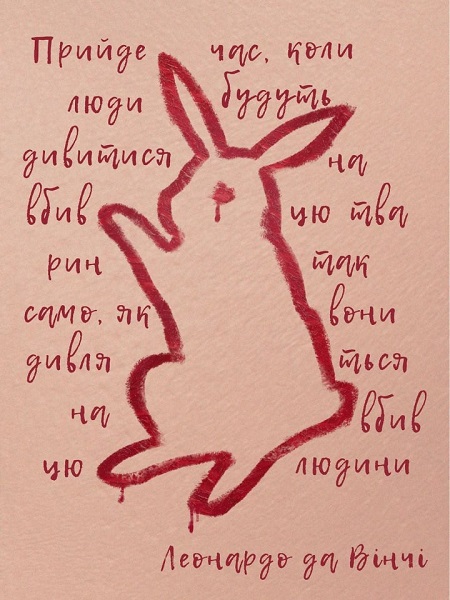 Прийде час, коли
люди будуть
дивитися на
вбив цю тва
рин так
само, як вони
дивля ться
на вбив
цю людини
Леонардо да Вінчі